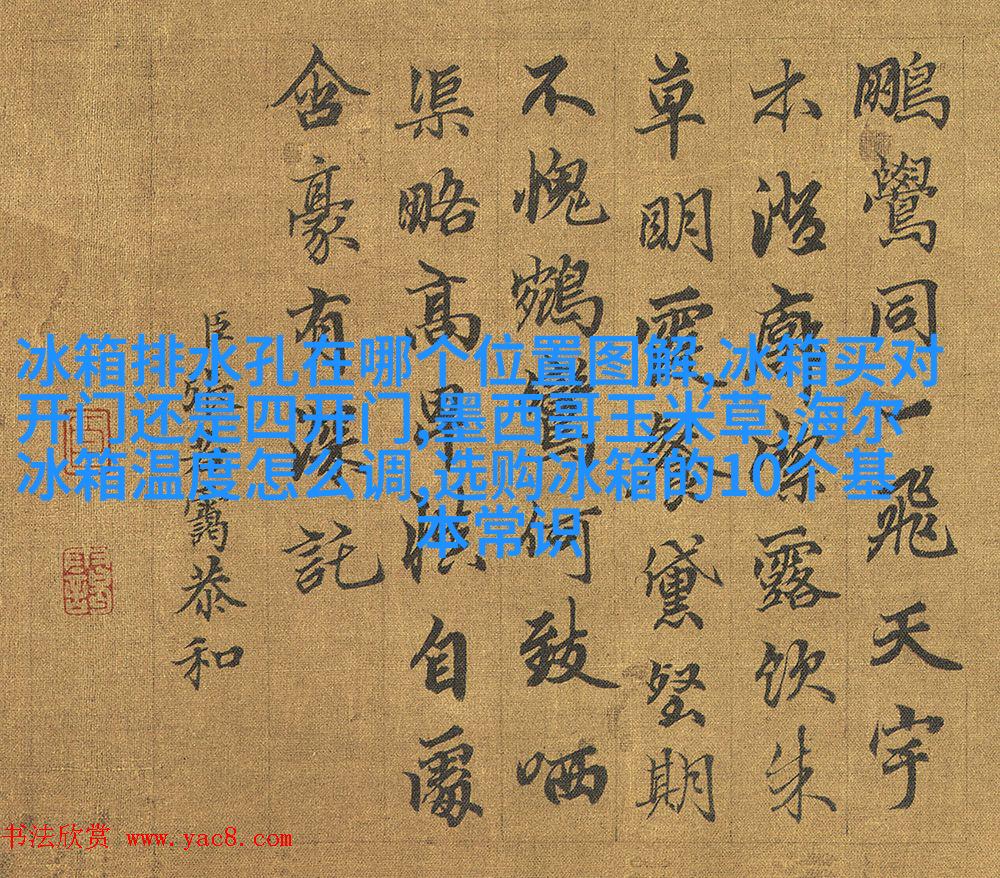 冰箱排水孔在哪个位置图解,冰箱买对
开门还是四开门,墨西哥玉米草,海尔
冰箱温度怎么调,选购冰箱的10个基
本常识
鵬鷽同一飛天宇
木澄廓潔露飲朱
草明霞餐黛堅期
不愧鵷何致哂
渠略高舉自處
含豪有深託
臣張若靄恭和
书法欣赏 www.yac8.com